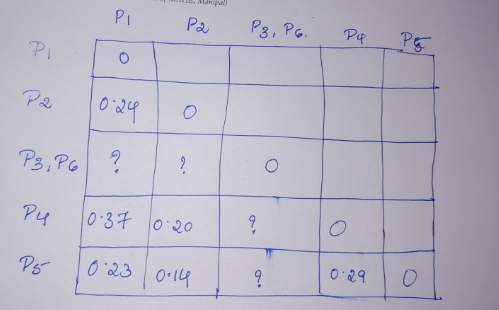 Manipal)
P1 P2 P3, P6. P4 P5
P1 0
P2 0.24 0
P3, P6 ? ? 0
P4 0.37 0.20 ? 0
P5 0.23 0.14 ? 0.29 0